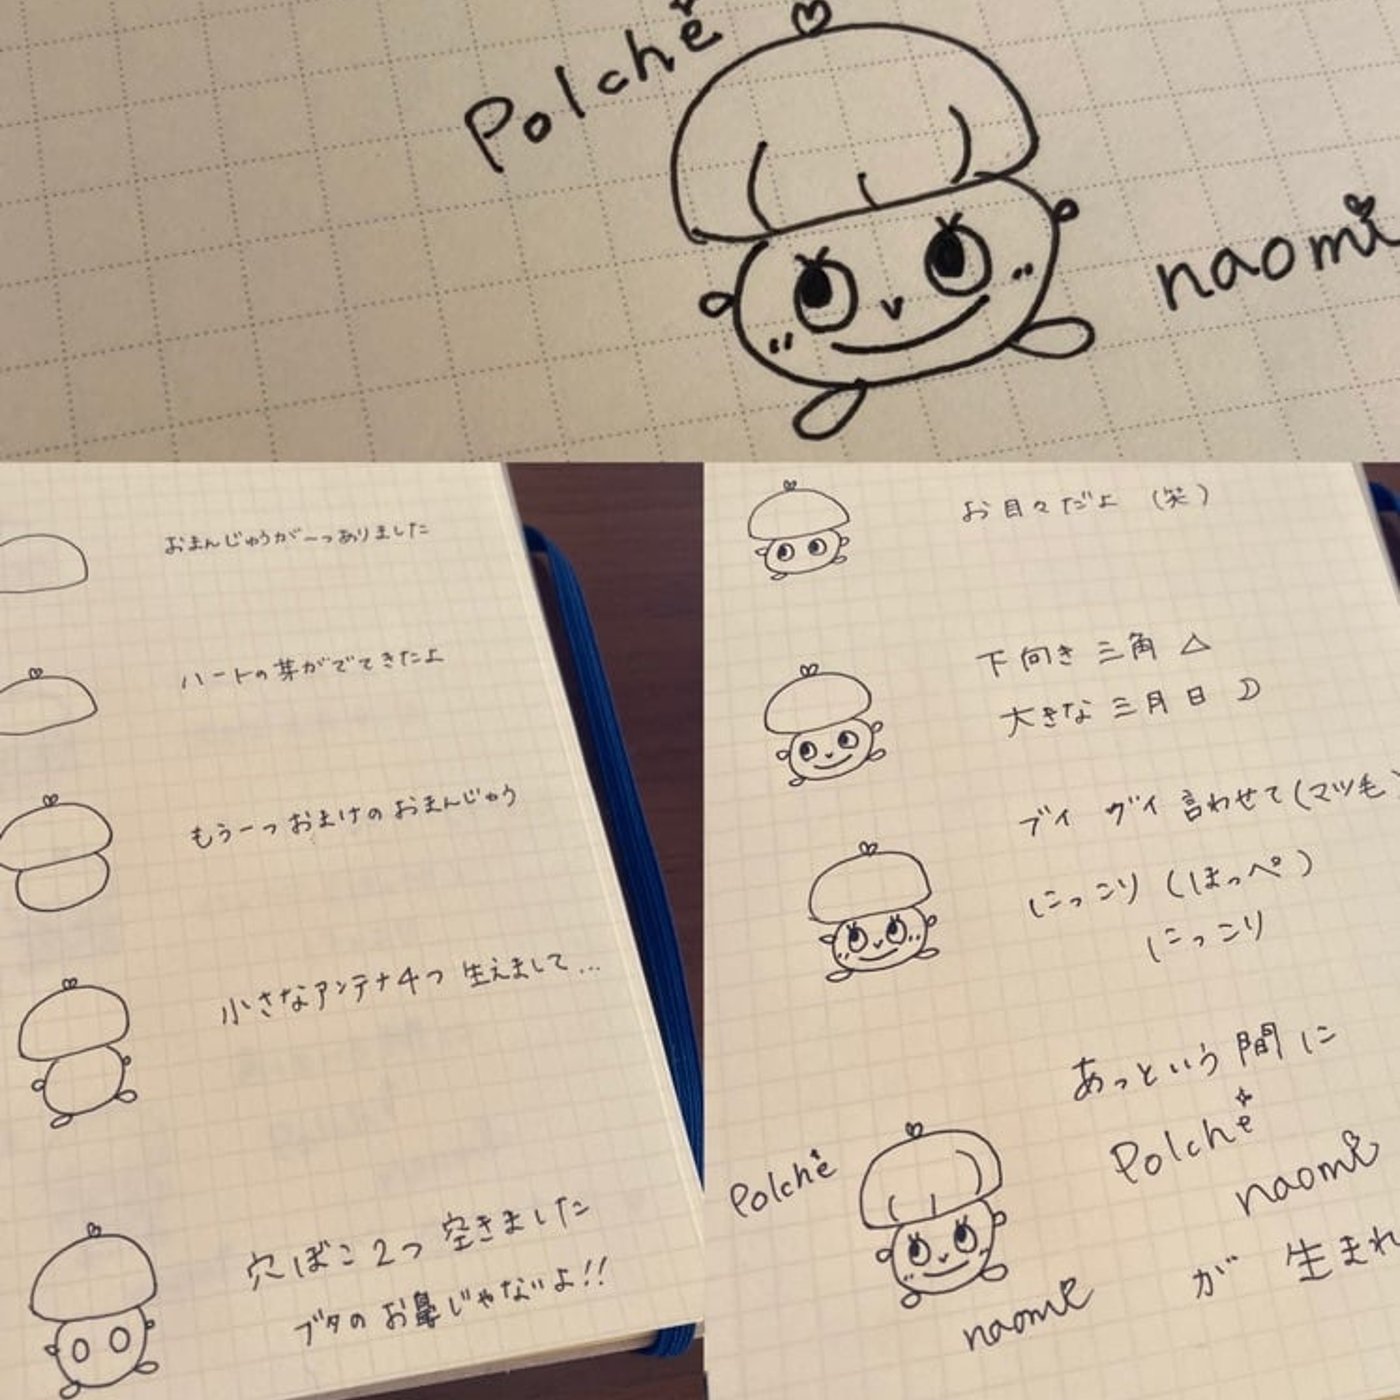 Polche
naomi
おまんじゅうが一つありました
ハートの芽がでてきたよ
もう一つおまけのおまんじゅう
小さなアンテナ4つ 生えまして...
穴ぼこ2つ 空きました
ブタのお鼻じゃないよ!!
お目々だよ (笑)
下向き 三角 △
大きな 三月日 ☽
ブイ ヴイ 言わせて(マツ毛)
にっこり (ほっぺ)
にっこり
あっという間に
Polche
naomi
が 生まれ
Polche
naomi